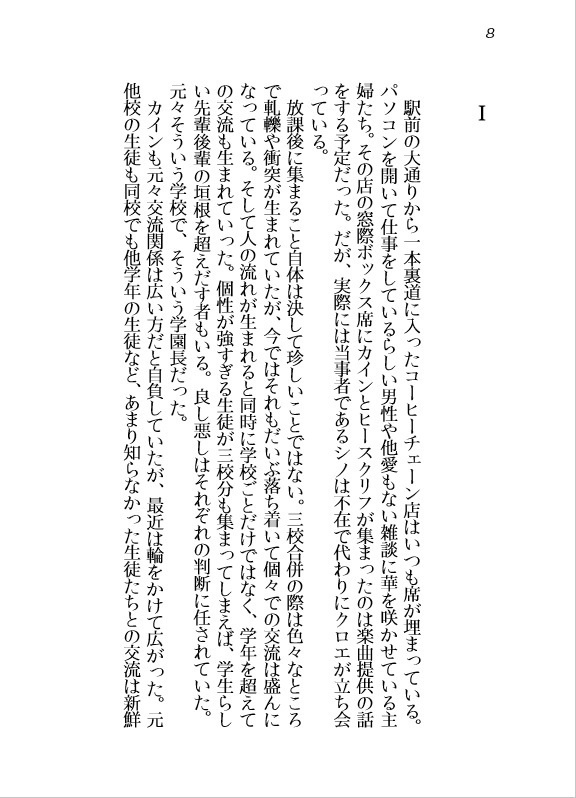 8
I
駅前の大通りから一本裏道に入ったコーヒーチェーン店はいつも席が埋まっている。
パソコンを開いて仕事をしているらしい男性や他愛もない雑談に華を咲かせている主
婦たち。その店の窓際ボックス席にカインとヒースクリフが集まったのは楽曲提供の話
をする予定だった。だが、実際には当事者であるシノは不在で代わりにクロエが立ち会
っている。
放課後に集まること自体は決して珍しいことではない。三校合併の際は色々なところ
で軋轢や衝突が生まれていたが、今ではそれもだいぶ落ち着いて個々での交流は盛んに
なっている。そして人の流れが生まれると同時に学校ごとだけではなく、学年を超えて
の交流も生まれていった。個性が強すぎる生徒が三校分も集まってしまえば、学生らし
い先輩後輩の垣根を超えだす者もいる。良し悪しはそれぞれの判断に任されていた。
元々そういう学校で、そういう学園長だった。
カインも元々交流関係は広い方だと自負していたが、最近は輪をかけて広がった。元
他校の生徒も同校でも他学年の生徒など、あまり知らなかった生徒たちとの交流は新鮮